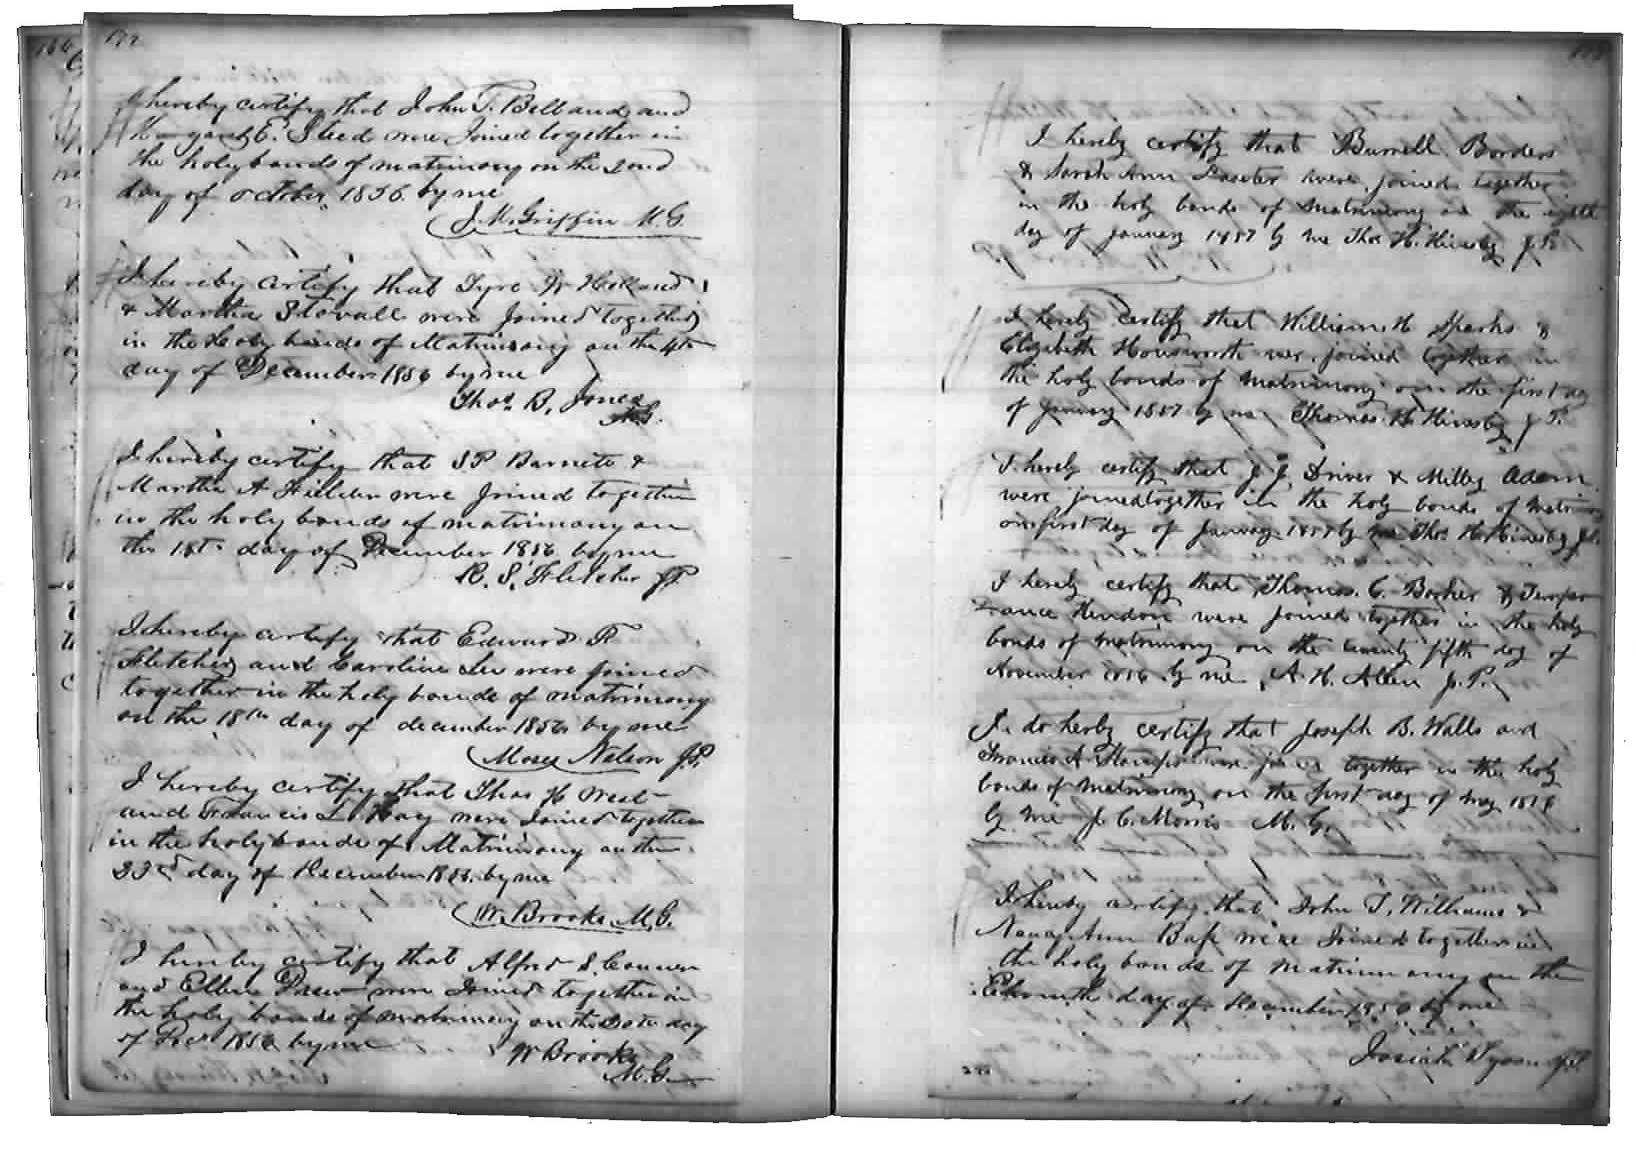 172
I hereby certify that John T. Belland and
Margaret E. Steed were Joined together in
the holy bands of matrimony on the 2ond
day of October 1856 by me
J. M. Griffin M. G.
I hereby certify that Tyre W Holland
& Martha Stovall were Joined together
in the holy bands of Matrimony on the 4th
day of December 1856 by me
Thos. B. Jones
M.G.
I hereby certify that S P Barnett &
Martha A were Joined together
in the holy bands of matrimony on
the 18th day of December 1856 by me
R. S. Fletcher JP
I hereby certify that Edward R
Fletcher and Caroline Lee were joined
together in the holy bands of matrimony
on the 18th day of december 1856 by me
Moses Nelson J.P.
I hereby certify that Thos H West
and Francis L. Hay were Joined together
in the holy bands of Matrimony on the
23rd day of December 1856 by me
W. Brooks M.G.
I hereby certify that Alfred S. Conner
and Ellen Drew were Joined together in
the holy bands of matrimony on the day
of Dec 1856 by me
W Brooks
M.G.
I hereby certify that Burrell Borders
& Sarah Ann Laseter were joined together
in the holy bonds of matrimony on the eight
day of January 1857 by me Thos. H. J.P.
I hereby certify that William H Sparks &
Elizabeth Housworth wer joined together in
the holy bonds of matrimony on the first day
of January 1857 by me Thomas H. J P.
I herely certify that J. J. Driver & Milley Adam
were joined together in the holy bonds of matrimony
on first day of January 1857 by me Thos. H. J.P.
I herely certify that Thomas C. Barker & Temper
ance Hendon were joined together in the holy
bonds of matrimony on the twenty fifth day of
November 1856 by me A. H. Allen J. P.
I do herby certify that Joseph B. Walls and
Frances A were joined together in the holy
bonds of matrimony on the first day of may
by me J. C. Morris M. G.
I hereby certify that John T. Williams &
Nancy Ann Bass were Joined together in
the holy bands of matrimony on the
Eleventh day of December 1856 by me
Josiah Tyson J.P.